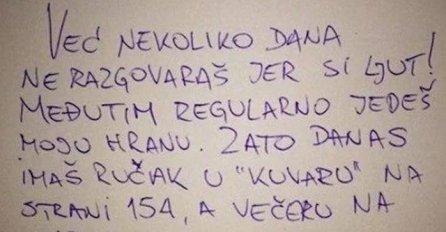 VEĆ NEKOLIKO DANA
NE RAZGOVARAŠ JER SI LJUT!
MEĐUTIM REGULARNO JEDEŠ
MOJU HRANU. ZATO DANAS
IMAŠ RUČAK U "KUVARU" NA
STRANI 154, A VEČERU NA